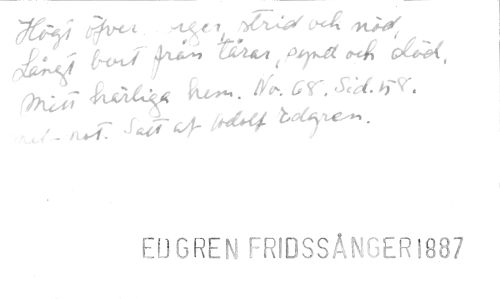 Högt öfver sorger, strid och nöd,
Långt bort från tårar, synd och död.
Mitt härliga hem. No. 68. Sid. 58.
mel-not. Satt af Adolf Edgren.
EDGREN FRIDSSÅNGER 1887